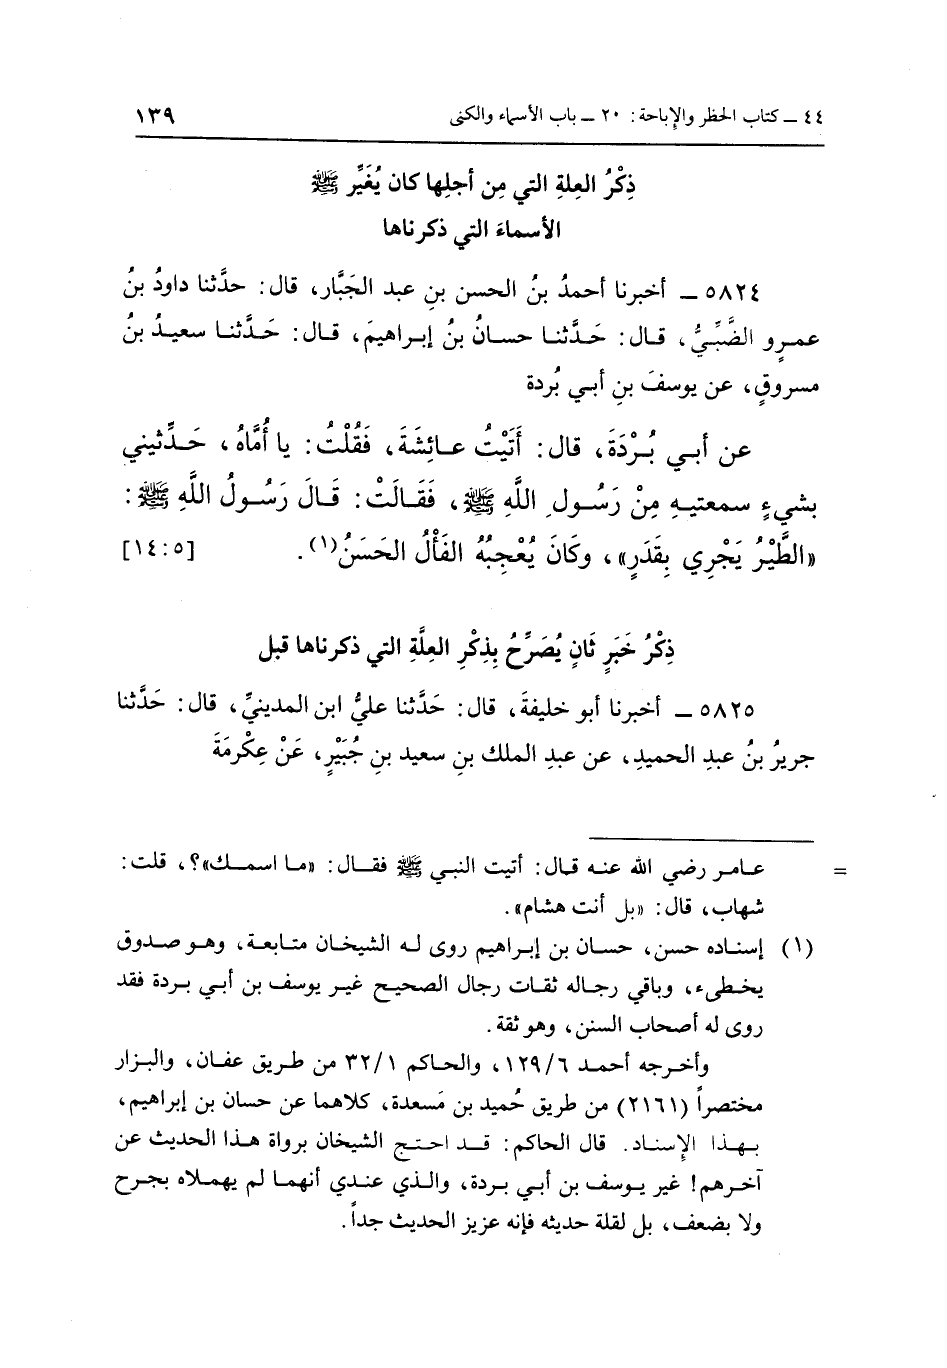 ٤٤ ـ كتاب الحظر والإباحة: ٢٠ ـ باب الأسماء والكنى ١٣٩
ذِكْرُ العِلةِ التي مِن أجلِها كان يُغَيِّر ﷺ
الأسماءَ التي ذكرناها
٥٨٢٤ ـ أخبرنا أحمدُ بنُ الحسن بنِ عبد الجَبَّار، قال: حدَّثنا داودُ بنُ
عمرٍو الضَّبِّيُّ، قال: حَدَّثنا حسانُ بنُ إبراهيمَ، قال: حَدَّثنا سعيدُ بنُ
مسروقٍ، عن يوسفَ بنِ أبي بُردة
عن أبي بُرْدَةَ، قال: أَتَيْتُ عائِشَةَ، فَقُلْتُ: يا أُمَّاهُ، حَدِّثيني
بشيءٍ سمعتيهِ مِنْ رَسُولِ اللَّهِ ﷺ، فَقَالَتْ: قَالَ رَسُولُ اللَّهِ ﷺ:
«الطَّيْرُ يَجْرِي بِقَدَرٍ»، وكَانَ يُعْجِبُهُ الفَأْلُ الحَسَنُ(١). [١٤:٥]
ذِكْرُ خَبَرٍ ثَانٍ يُصَرِّحُ بِذِكْرِ العِلَّةِ التي ذكرناها قبل
٥٨٢٥ ـ أخبرنا أبو خليفةَ، قال: حَدَّثنا عليُّ ابن المدينيِّ، قال: حَدَّثنا
جريرُ بنُ عبدِ الحميدِ، عن عبدِ الملك بنِ سعيد بنِ جُبَيْرٍ، عَنْ عِكْرمَةَ
= عامر رضي الله عنه قال: أتيت النبي ﷺ فقال: «ما اسمك»؟، قلت:
شهاب، قال: «بل أنت هشام».
(١) إسناده حسن، حسان بن إبراهيم روى له الشيخان متابعة، وهو صدوق
يخطىء، وباقي رجاله ثقات رجال الصحيح غير يوسف بن أبي بردة فقد
روى له أصحاب السنن، وهو ثقة.
وأخرجه أحمد ١٢٩/٦، والحاكم ٣٢/١ من طريق عفان، والبزار
مختصراً (٢١٦١) من طريق حُميد بن مَسعدة، كلاهما عن حسان بن إبراهيم،
بهذا الإسناد. قال الحاكم: قد احتج الشيخان برواة هذا الحديث عن
آخرهم! غير يوسف بن أبي بردة، والذي عندي أنهما لم يهملاه بجرح
ولا بضعف، بل لقلة حديثه فإنه عزيز الحديث جداً.